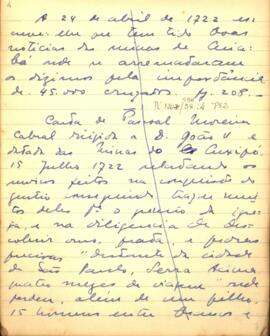 4
A 24 de abril de 1722 es-
creve em que tem tido boas
noticias das minas de Cuia-
bá onde se arremataram
os dizimos pela importância
de 45.000 cruzados. 208 -
Carta de Pascoal Moreira
Cabral dirigida a D. João V e
datada das Minas do Cuxipó,
15 Julho 1722 relatando os
serviços feitos na conquista do
gentio
e na diligencia de des-
cobrir ouro, prata, e pedras
preciosas "distante da cidade
de São Paulo, Serra acima
quatro mezes de viagem" onde
perdeu, além de um filho,
15 homens entre brancos e